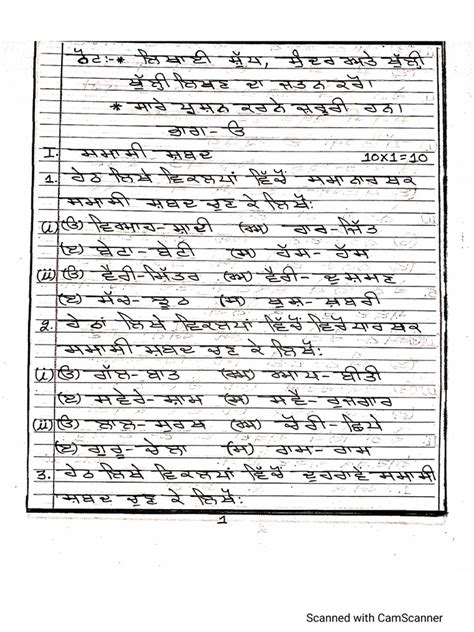 ਨੋਟ:- * ਲਿਖਾਈ ਸ਼ੁੱਧ, ਸੁੰਦਰ ਅਤੇ ਖੁੱਲ੍ਹੀ
ਖੁੱਲ੍ਹੀ ਲਿਖਣ ਦਾ ਜਤਨ ਕਰੋ।
* ਸਾਰੇ ਪ੍ਰਸ਼ਨ ਕਰਨੇ ਜ਼ਰੂਰੀ ਹਨ।
ਭਾਗ-ੳ
I. ਸਮਾਸੀ ਸ਼ਬਦ 10x1=10
1. ਹੇਠ ਲਿਖੇ ਵਿਕਲਪਾਂ ਵਿੱਚੋਂ ਸਮਾਨਾਰਥਕ
ਸਮਾਸੀ ਸ਼ਬਦ ਚੁਣ ਕੇ ਲਿਖੋ:
(i) (ੳ) ਵਿਆਹ-ਸ਼ਾਦੀ (ਅ) ਹਾਰ-ਜਿੱਤ
(ੲ) ਬੇਟਾ-ਬੇਟੀ (ਸ) ਹੱਸ-ਹੱਸ
(ii) (ੳ) ਵੈਰੀ-ਮਿੱਤਰ (ਅ) ਵੈਰੀ-ਦੁਸ਼ਮਣ
(ੲ) ਸੱਚ-ਝੂਠ (ਸ) ਖ਼ੁਸ਼-ਖ਼ਬਰੀ
2. ਹੇਠਾਂ ਲਿਖੇ ਵਿਕਲਪਾਂ ਵਿੱਚੋਂ ਵਿਰੋਧਾਰਥਕ
ਸਮਾਸੀ ਸ਼ਬਦ ਚੁਣ ਕੇ ਲਿਖੋ:
(i) (ੳ) ਗੱਲ-ਬਾਤ (ਅ) ਆਪ-ਬੀਤੀ
(ੲ) ਸਵੇਰੇ-ਸ਼ਾਮ (ਸ) ਸਵੈ-ਰੁਜ਼ਗਾਰ
(ii) (ੳ) ਲਾਲ-ਸੁਰਖ਼ (ਅ) ਚੋਰੀ-ਛਿਪੇ
(ੲ) ਗੁਰੂ-ਚੇਲਾ (ਸ) ਰਾਮ-ਰਾਮ
3. ਹੇਠ ਲਿਖੇ ਵਿਕਲਪਾਂ ਵਿੱਚੋਂ ਦੁਹਰਾਵੇਂ ਸਮਾਸੀ
ਸ਼ਬਦ ਚੁਣ ਕੇ ਲਿਖੋ:
1
Scanned with CamScanner